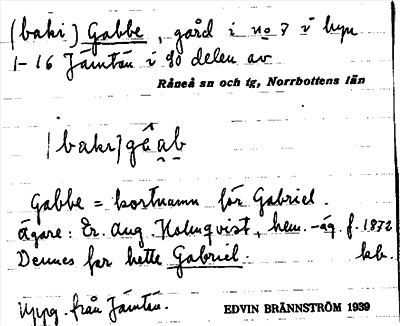 (baki) Gabbe, gård i no 7 i byn
1-16 Jämtön i so delen av
Råneå sn och tg, Norrbottens län
[bakı] gầab
Gabbe = kortnamn för Gabriel.
ägare: Er. Aug. Holmqvist, hem.-äg. f. 1872
Dennes far hette Gabriel. kb.
Uppg. från Jämtön.
EDVIN BRÄNNSTRÖM 1939